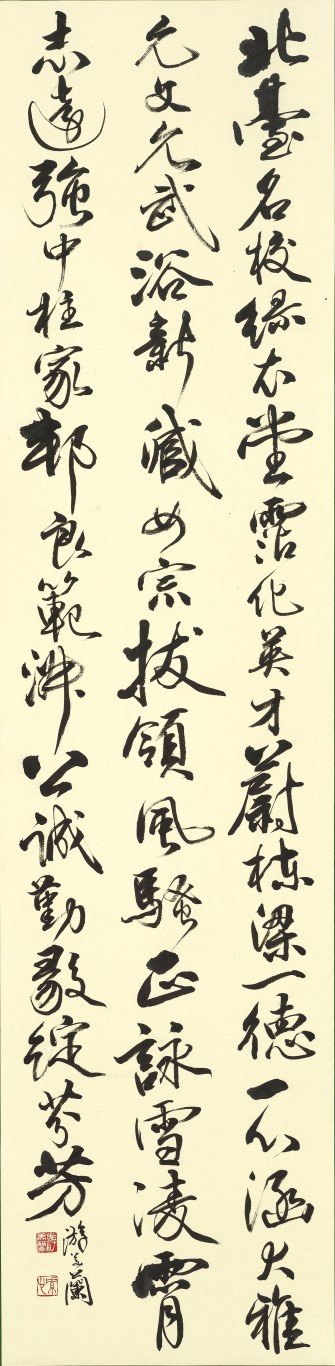 北臺名校綠衣堂霑化英才蔚棟梁一德一心涵大雅
允文允武浴新臧女宗拔領風騷正詠雪凌霄
志遠強中柱家邦良範沛公誠勤毅綻芬芳
游蘭